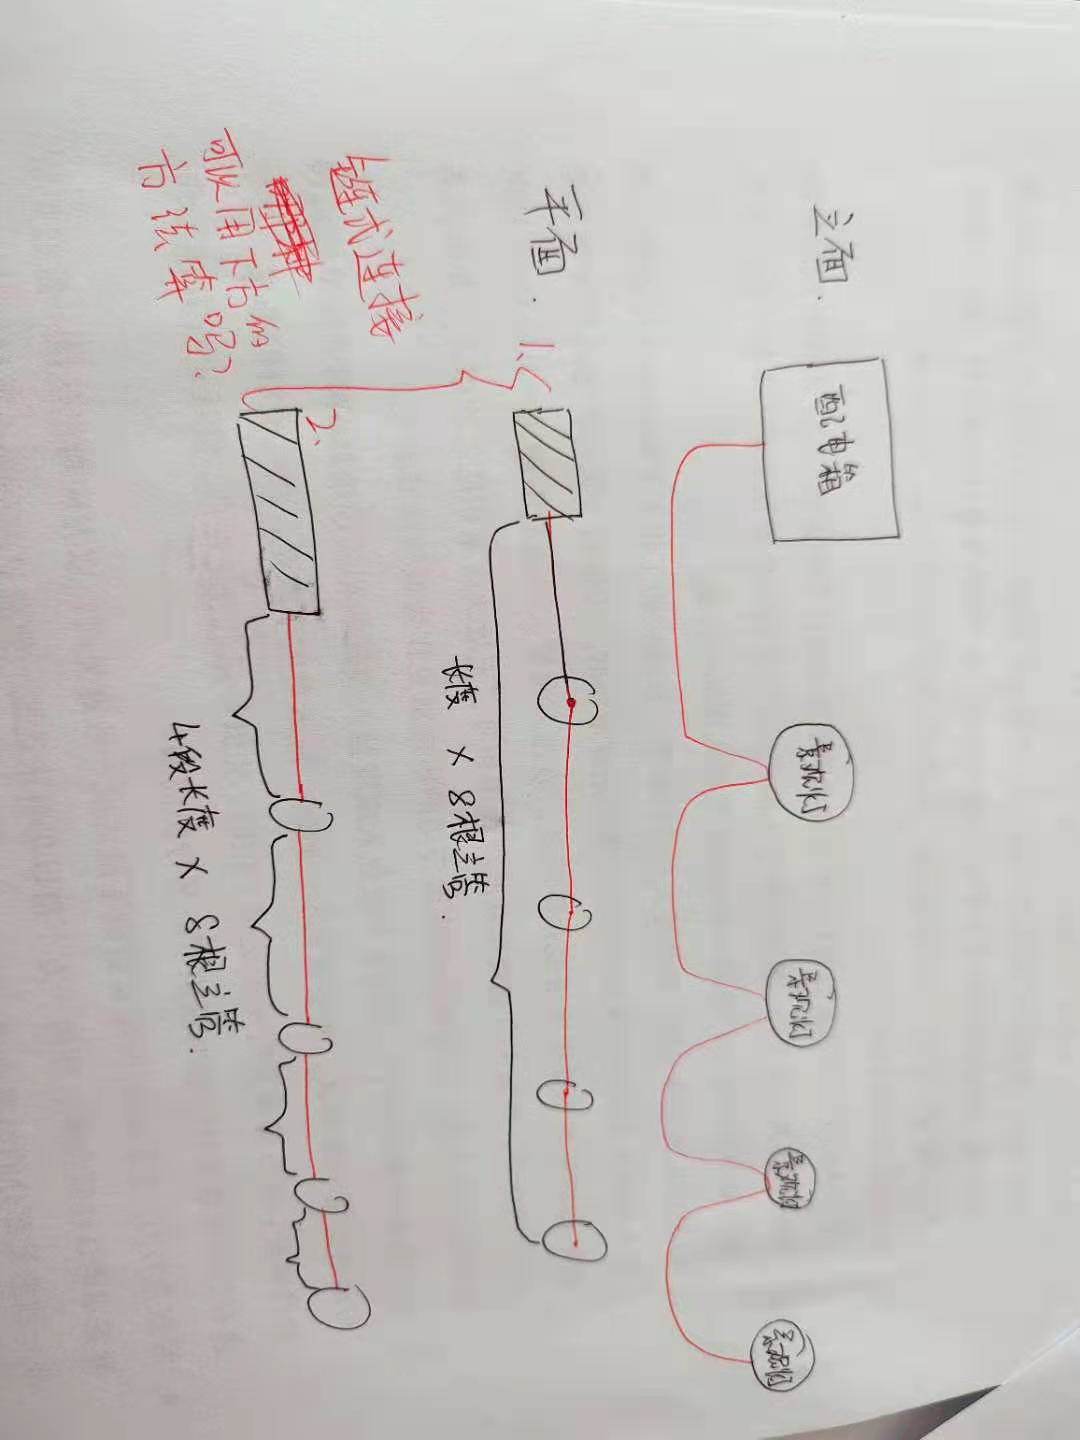 立面.
配电箱
景观灯
景观灯
景观灯
景观灯
平面.
1、
长度 × 8根主管.
链式连接
可以用下方的
方法算吗?
2、
4段长度 × 8根主管.